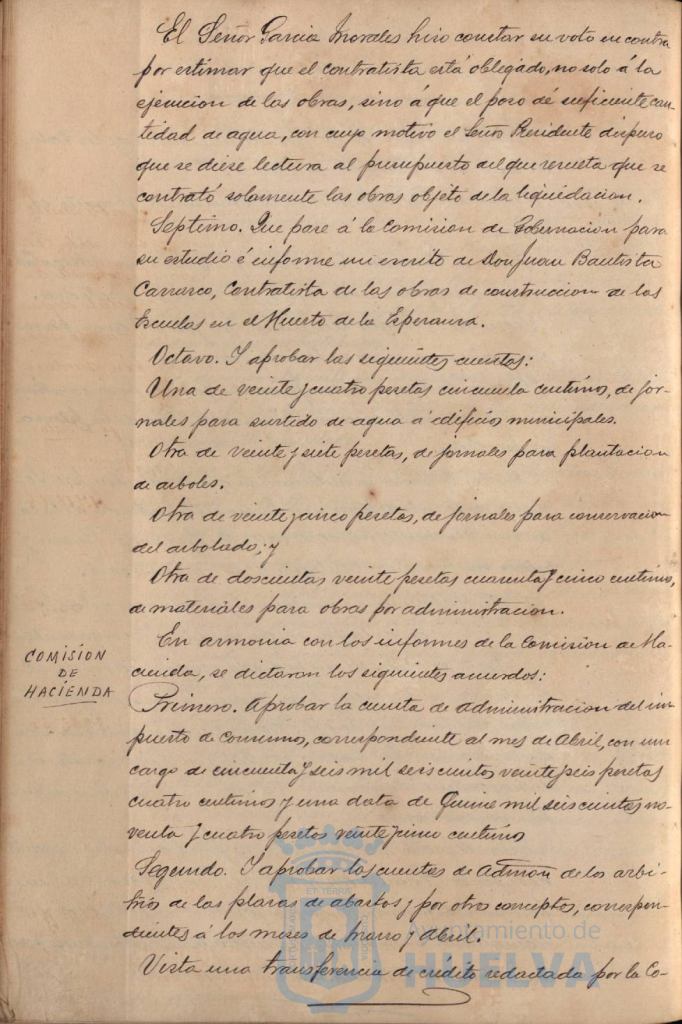 El Señor Garcia Morales hizo constar su voto en contra
por estimar que el contratista está obligado, no solo á la
ejecucion de las obras, sino á que el pozo dé suficiente can-
tidad de agua, con cuyo motivo el Señor Presidente dispuso
que se diese lectura al presupuesto del que resulta que se
contrató solamente las obras objeto de la liquidacion.
Septimo. Que pase á la Comision de Gobernacion para
su estudio é informe un escrito de Don Juan Bautista
Carrasco, Contratista de las obras de construccion de las
Escuelas en el Huerto de la Esperanza.
Octavo. Y aprobar las siguientes cuentas:
Una de veinte y cuatro pesetas cincuenta centimos, de jor-
nales para surtido de agua á edificios municipales.
Otra de veinte y siete pesetas, de jornales para plantacion
de arboles.
Otra de veinte y cinco pesetas, de jornales para conservacion
del arbolado; y
Otra de doscientas veinte pesetas cuarenta y cinco centimos,
de materiales para obras por administracion.
COMISION
DE
HACIENDA
En armonia con los informes de la Comision de Ha-
cienda, se dictaron los siguientes acuerdos:
Primero. Aprobar la cuenta de administracion del im-
puesto de Consumos, correspondiente al mes de Abril, con un
cargo de cincuenta y seis mil seiscientos veinte y seis pesetas
cuatro centimos y una data de Quince mil seiscientos no-
venta y cuatro pesetas veinte y cinco centimos
Segundo. Y aprobar las cuentas de Admon de los arbi-
trios de las plazas de abastos y por otros conceptos, correspon-
dientes á los meses de Marzo y Abril.
Vista una transferencia de crédito redactada por la Co-
Ayuntamiento de
HUELVA